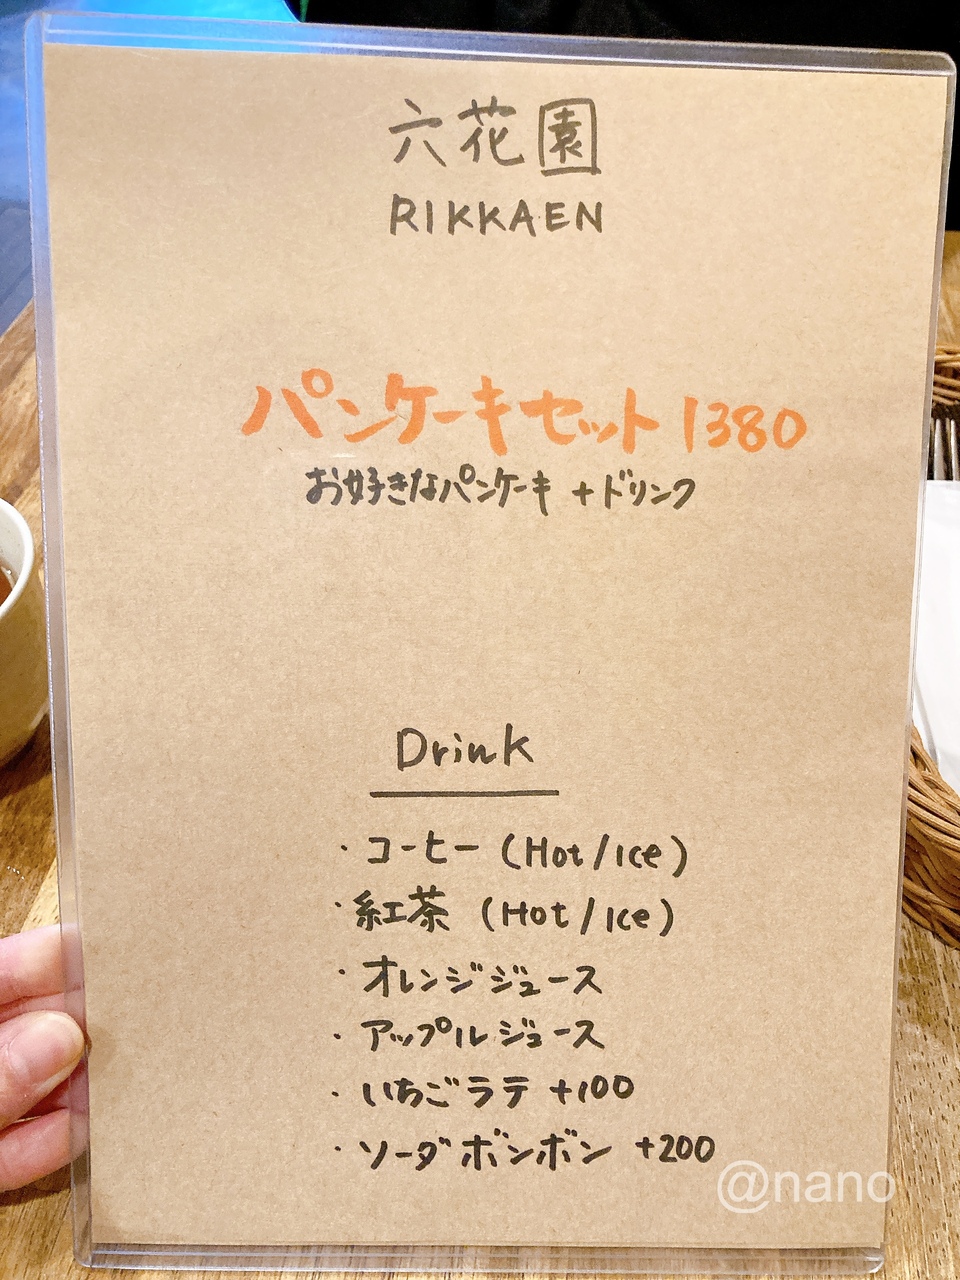 六花園
RIKKAEN
パンケーキセット 1380
お好きなパンケーキ +ドリンク
Drink
・コーヒー (Hot/Ice)
・紅茶 (Hot/Ice)
・オレンジジュース
・アップルジュース
・いちごラテ +100
・ソーダボンボン +200
@nano